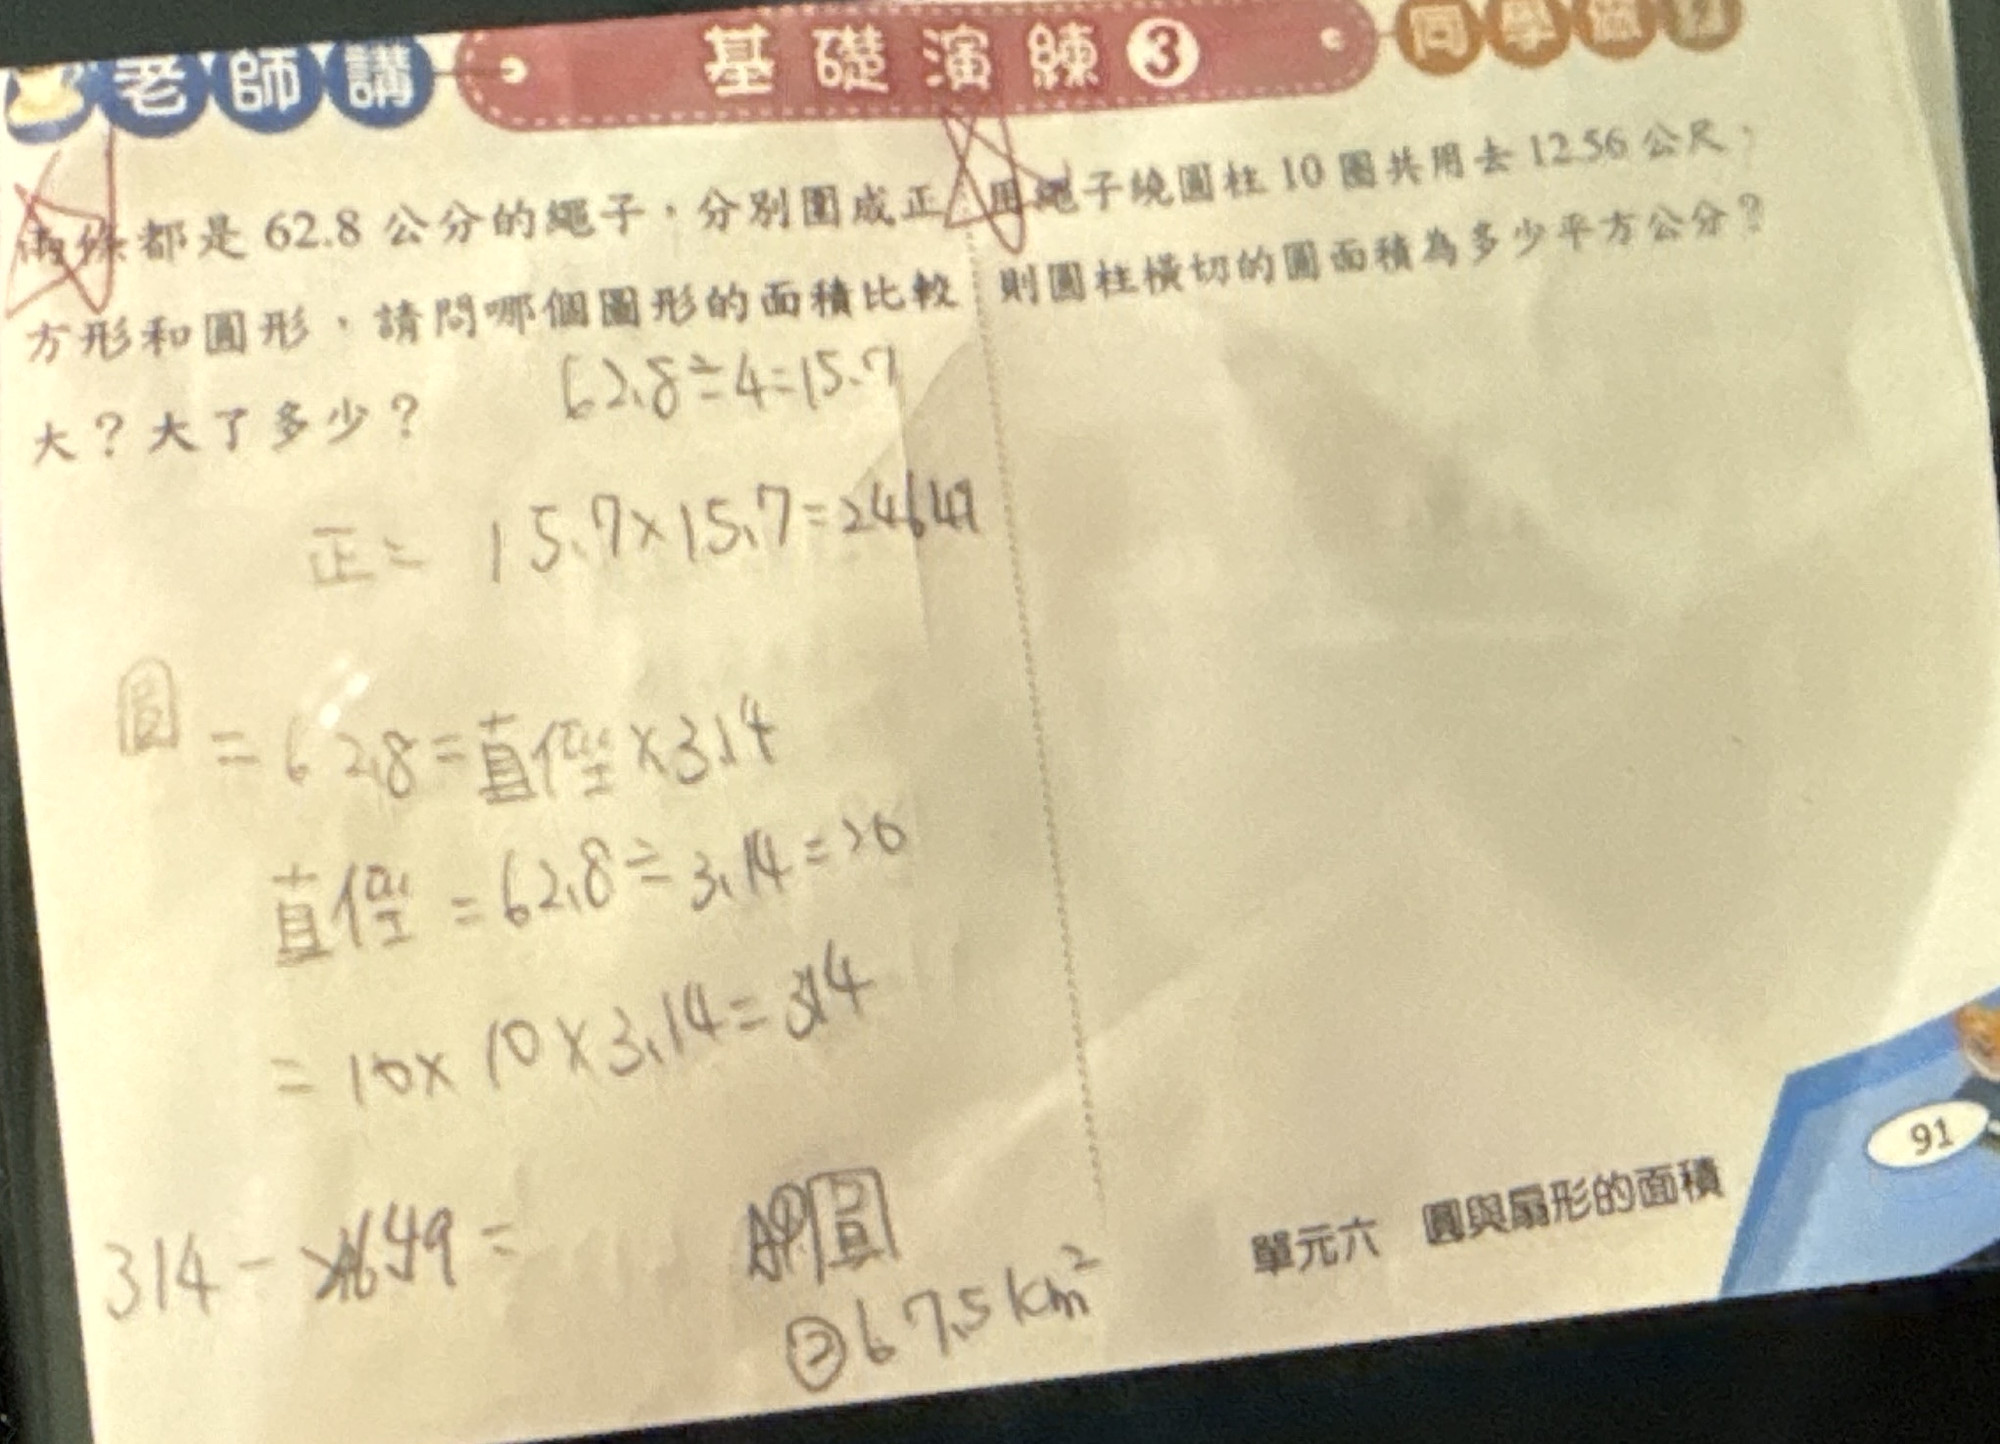 老師講
基礎演練3
同學做
兩條都是 62.8 公分的繩子，分別圍成正
方形和圓形，請問哪個圖形的面積比較
大？大了多少？
62.8÷4=15.7
正= 15.7×15.7=24649
圓 = 62.8=直徑×3.14
直徑 = 62.8÷3.14=20
= 10×10×3.14=314
314-24649=
圓
②67.5km²
用繩子繞圓柱 10 圈共用去 12.56 公尺，
則圓柱橫切的圓面積為多少平方公分？
單元六 圓與扇形的面積
91